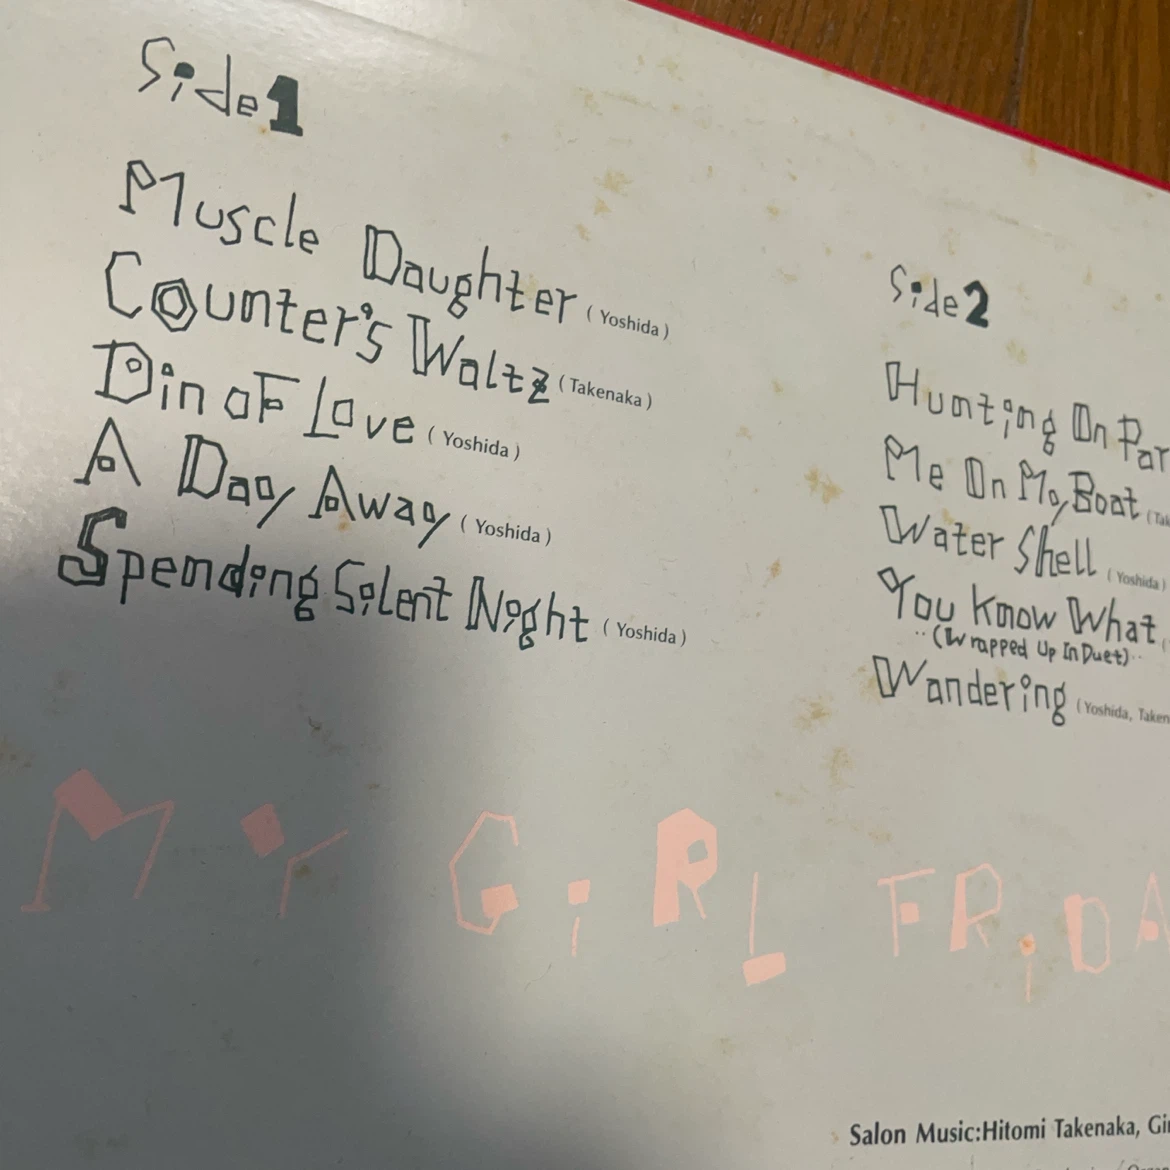 Side 1
Muscle Daughter ( Yoshida )
Counter's Waltz ( Takenaka )
Din oF Love ( Yoshida )
A Day Away ( Yoshida )
Spending Silent Night ( Yoshida )
Side 2
Hunting On
Me On My Boat
Water Shell ( Yoshida )
You Know What
··(Wrapped Up In Duet)··
Wandering ( Yoshida,
MY GiRL
Salon Music:Hitomi Takenaka,